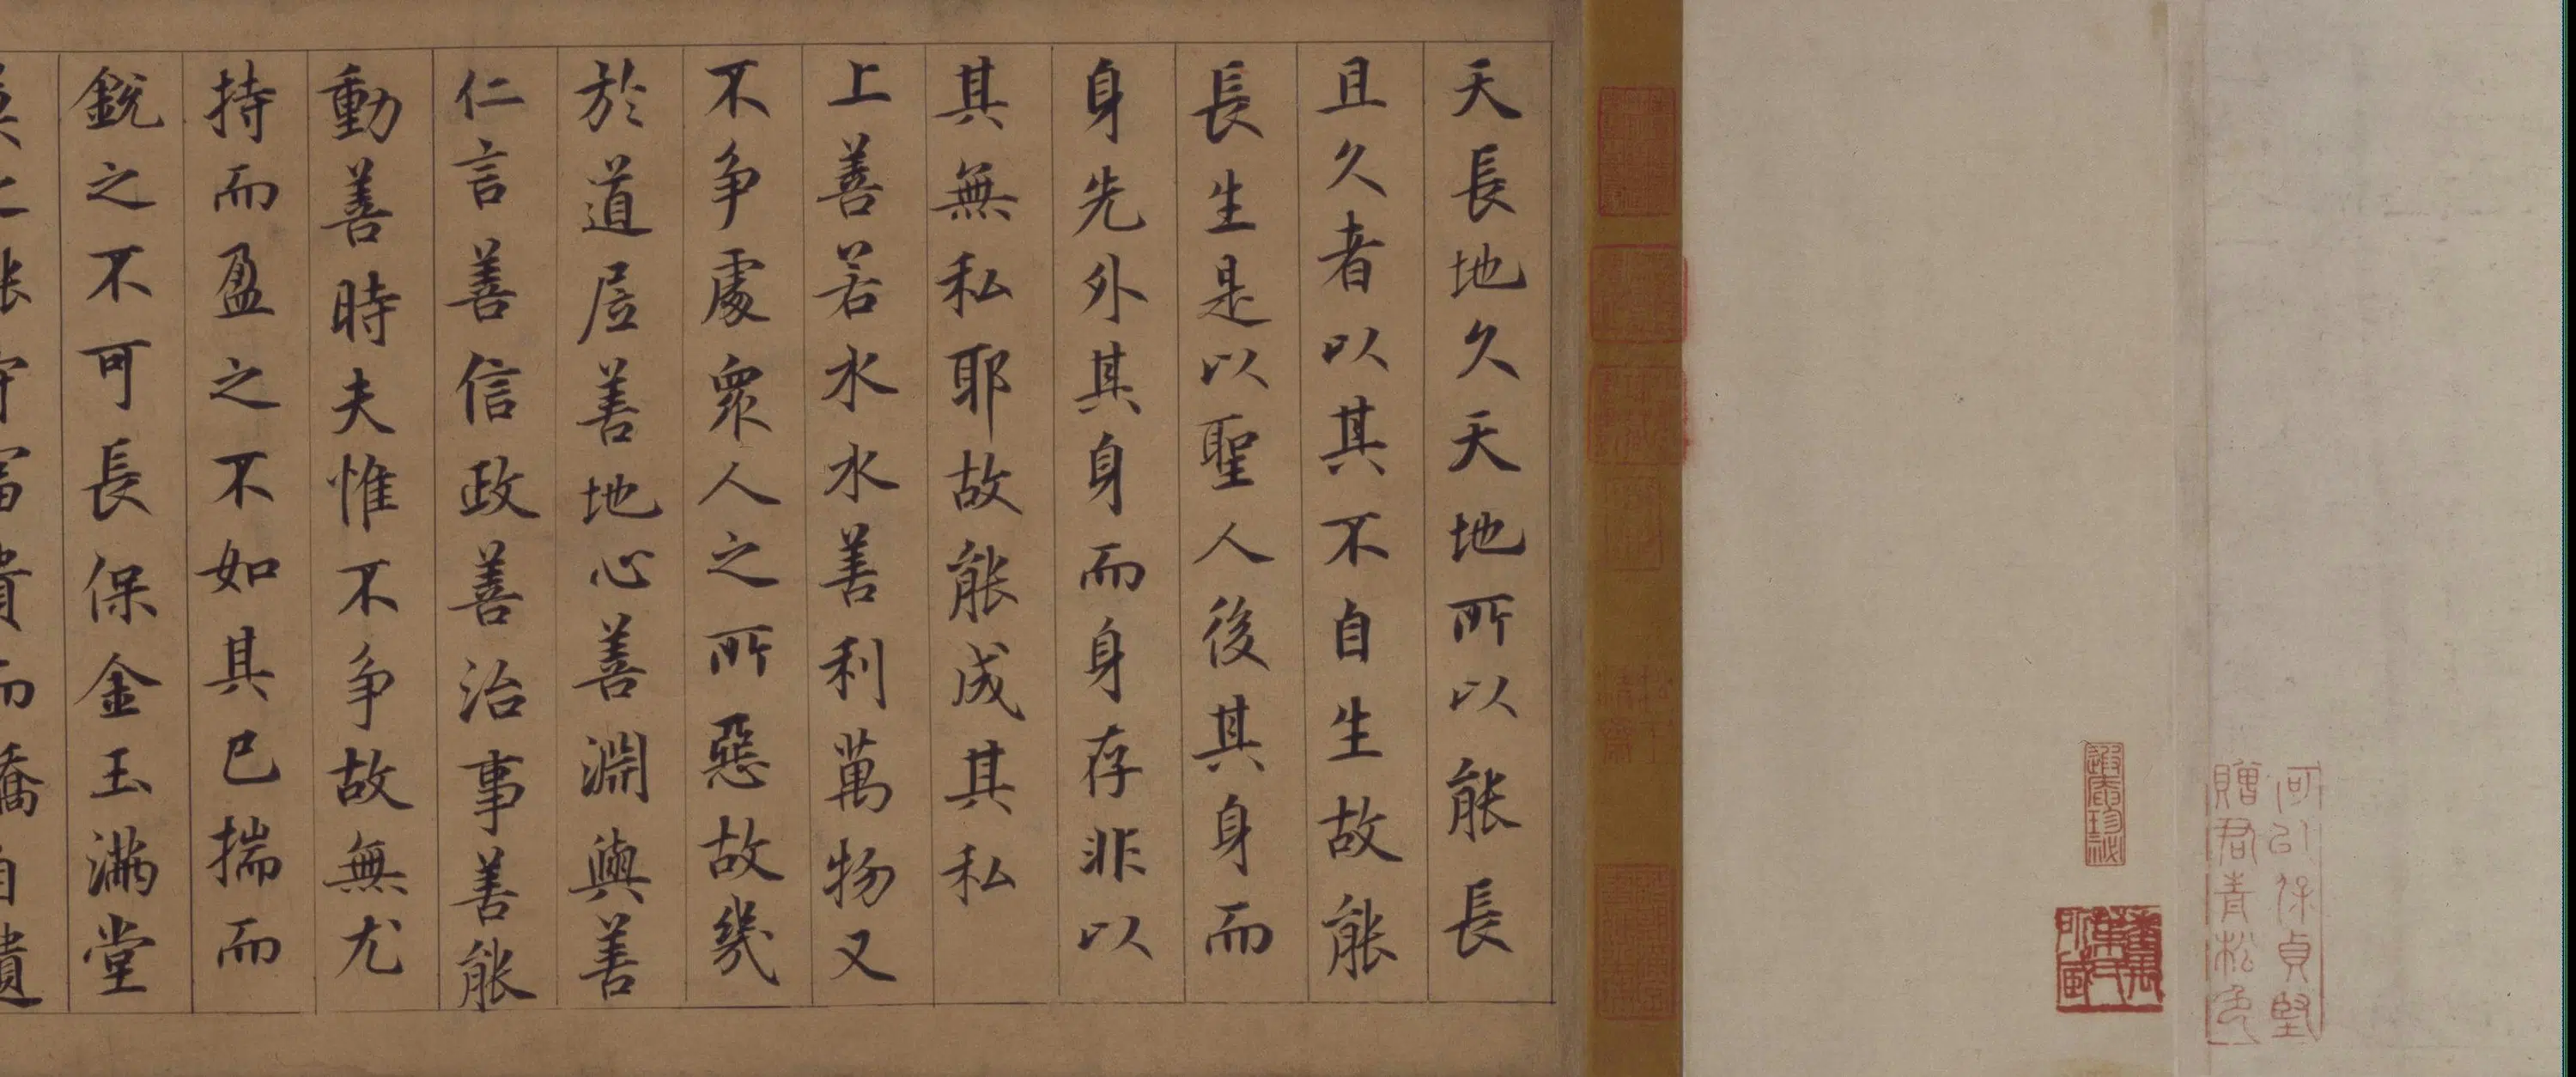 天長地久天地所以能長
且久者以其不自生故能
長生是以聖人後其身而
身先外其身而身存非以
其無私耶故能成其私
上善若水水善利萬物又
不争處衆人之所惡故㡬
於道居善地心善淵與善
仁言善信政善治事善能
動善時夫惟不争故無尤
持而盈之不如其已揣而
銳之不可長保金玉滿堂
莫之能守富貴而驕自遺
可以保貞堅
贈君青松色